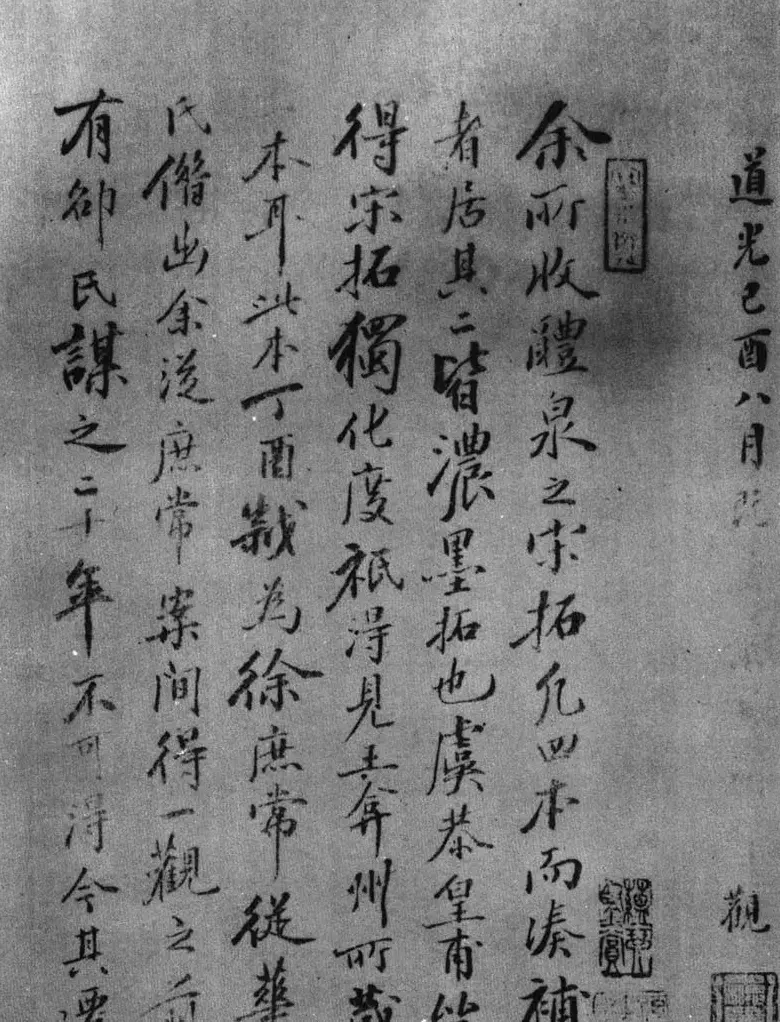 道光己酉八月 觀
余所收醴泉之宋拓凡四本而湊補
者居其二皆濃墨拓也虞恭皇甫
得宋拓獨化度祇得見王弇州所藏
本耳此本丁酉歲為徐庶常從華
氏借出余從庶常案間得一觀之前
有郤氏謀之二十年不可得今其